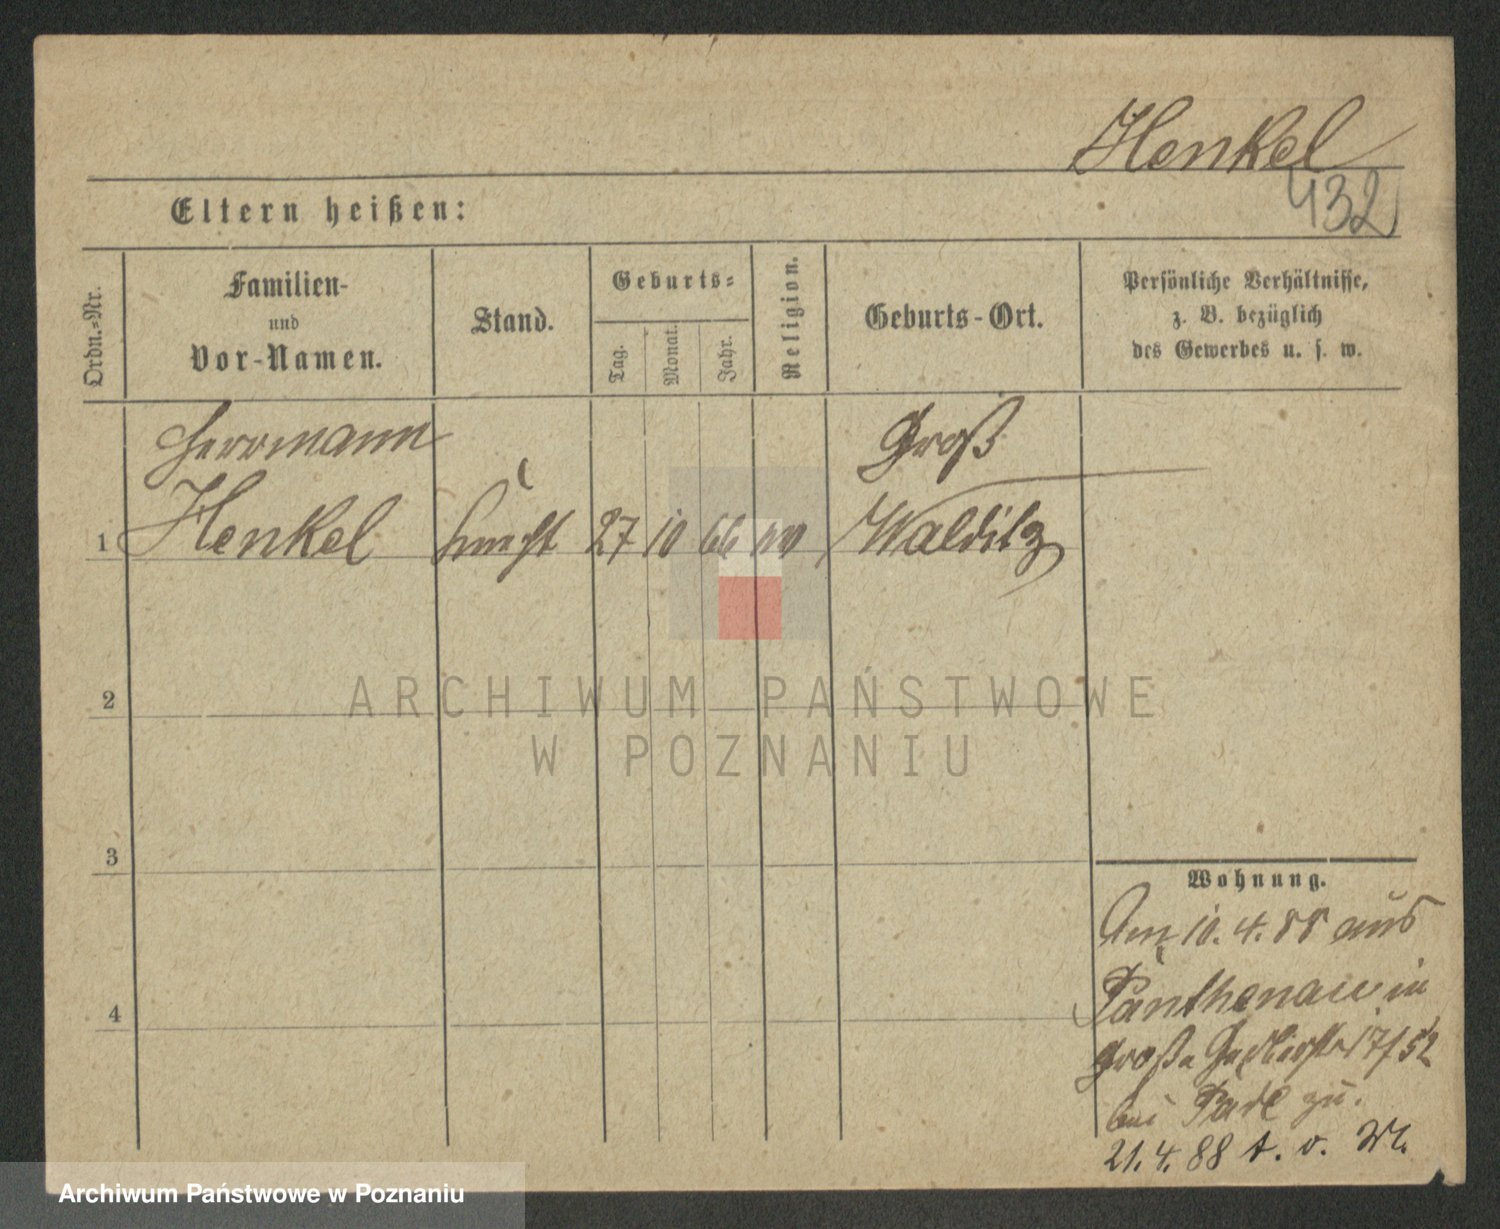 Henkel
432
Eltern heißen:
Ordn.=Nr.
Familien-
und
Vor-Namen.
Stand.
Geburts=
Tag.
Monat.
Jahr.
Religion.
Geburts-Ort.
Persönliche Verhältnisse,
z. B. bezüglich
des Gewerbes u. s. w.
Herrmann
Groß
1 Henkel 27 10 66 Walditz
2
3
4
Wohnung.
Am 10. 4. 88 aus
Panthenau in
Große 17/52
bei zu.
21. 4. 88 t. v.
ARCHIWUM PAŃSTWOWE
W POZNANIU
Archiwum Państwowe w Poznaniu